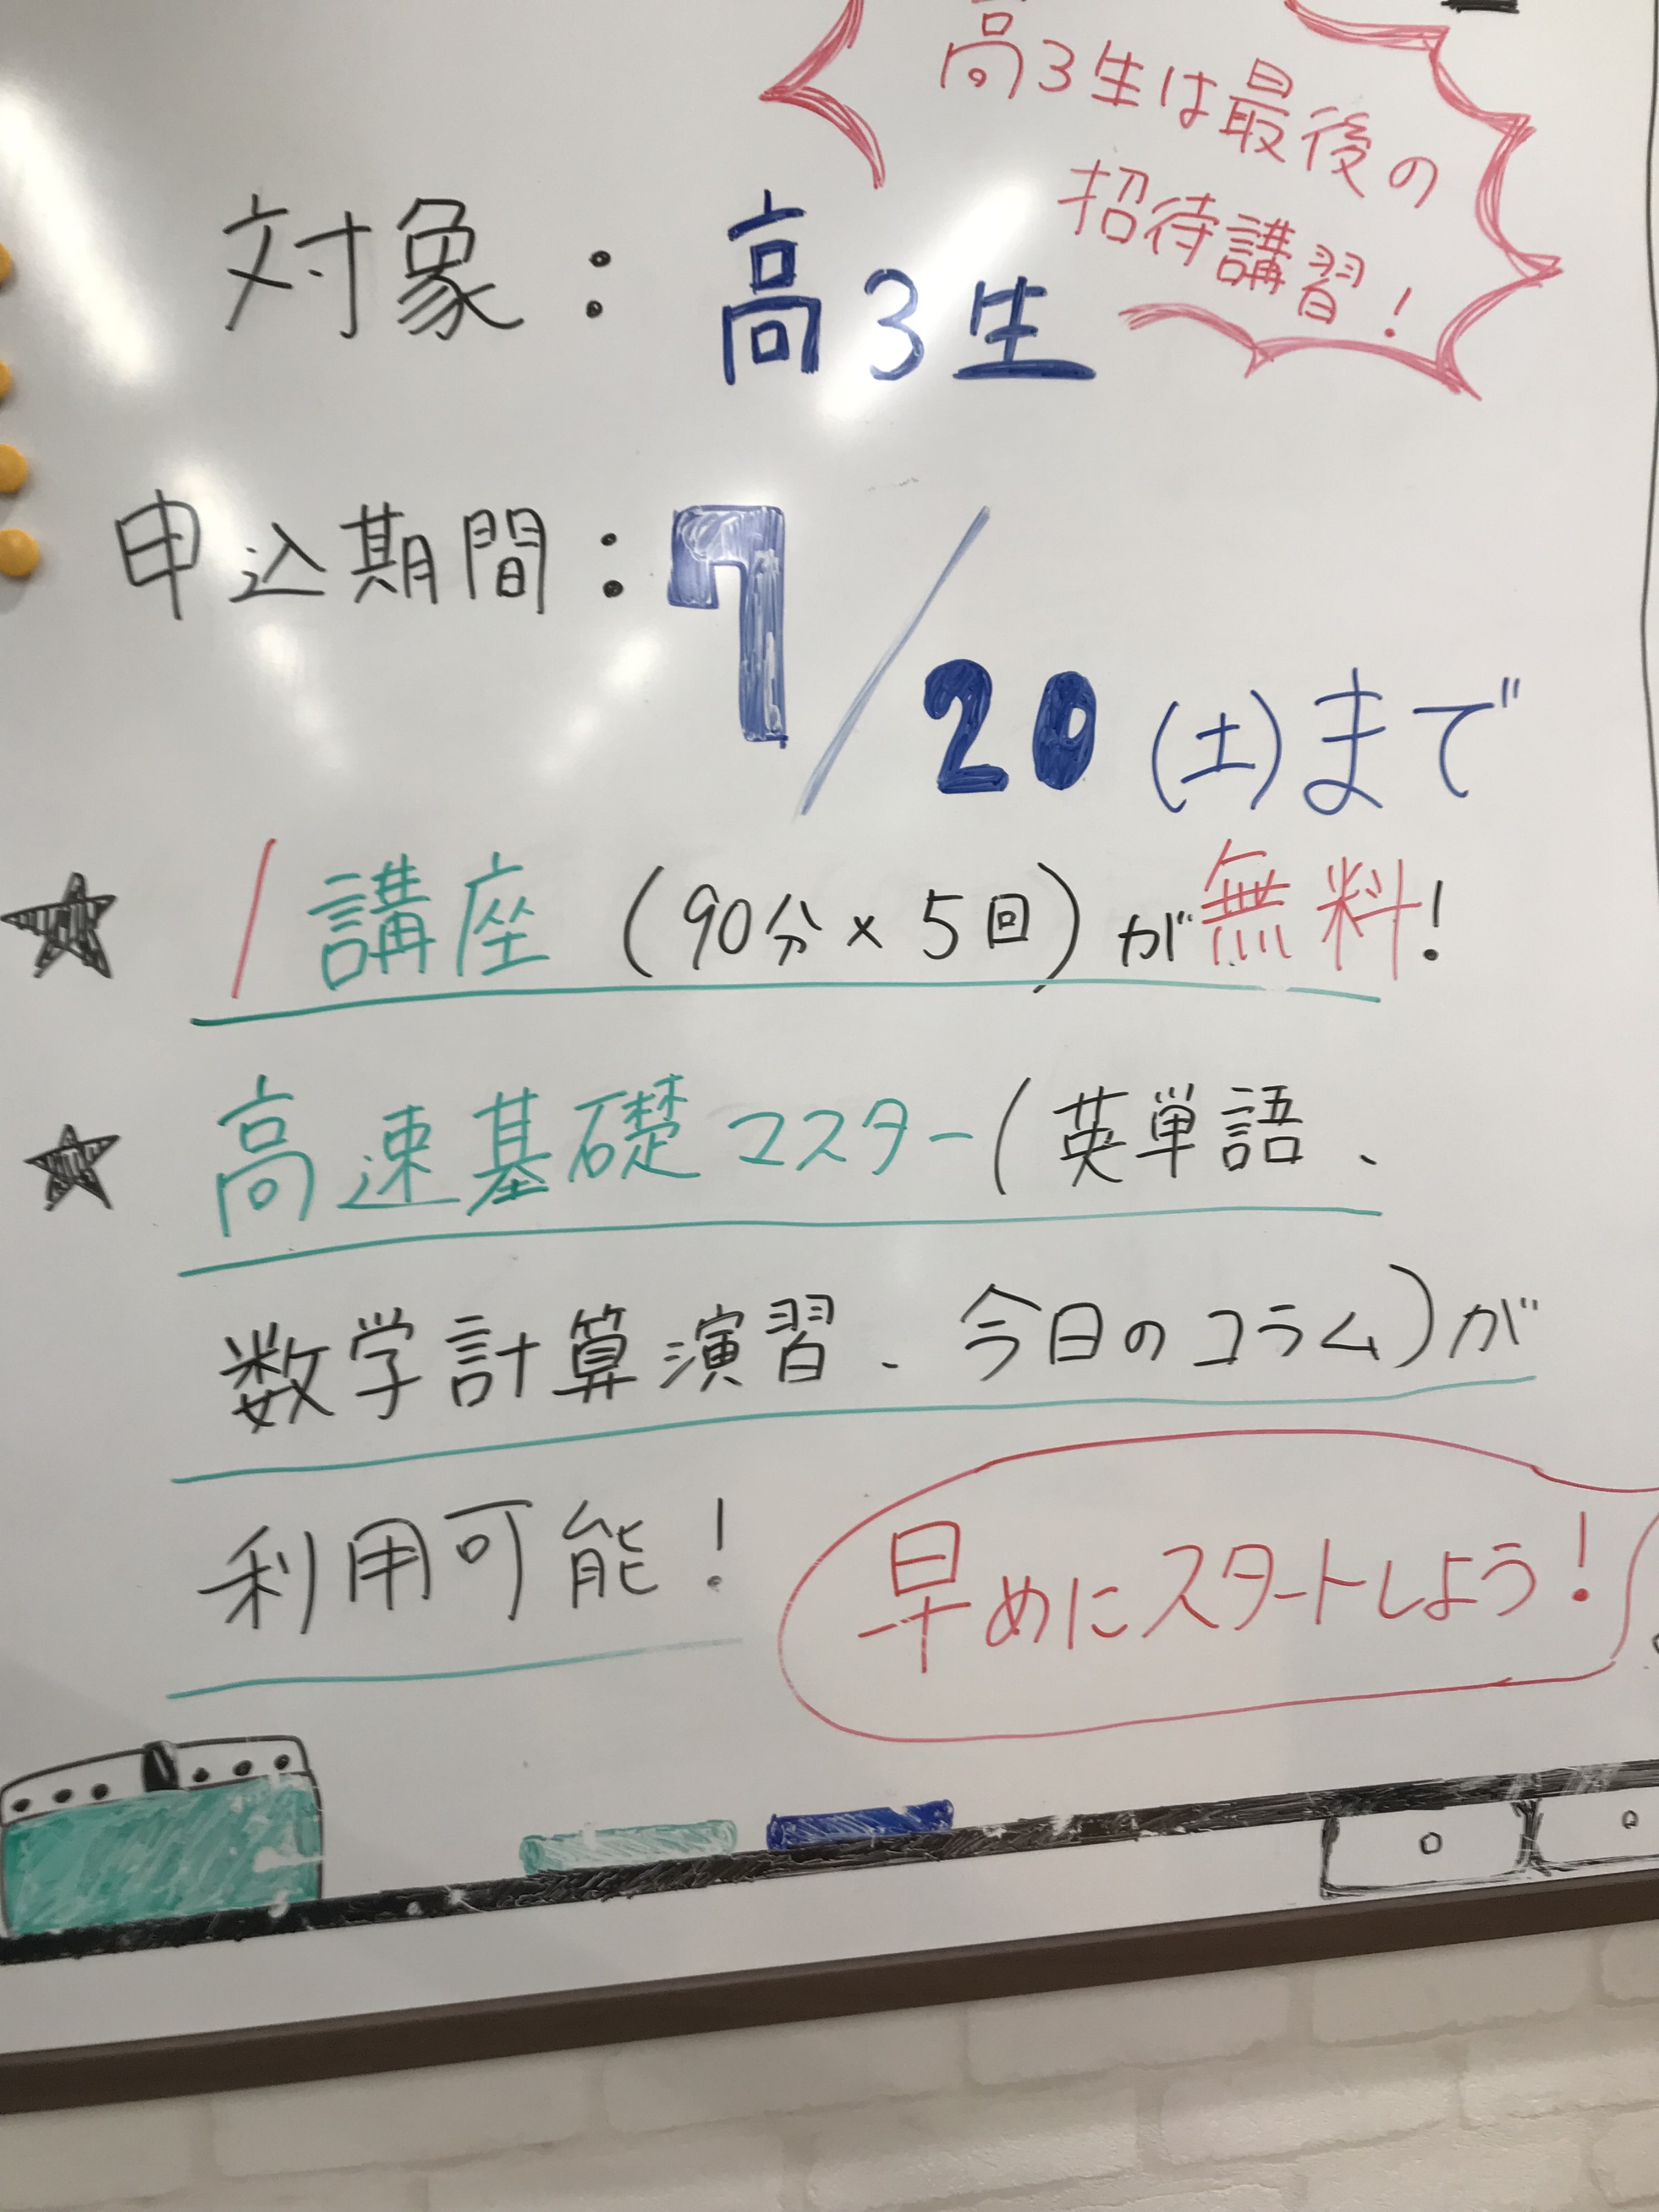 高3生は最後の
招待講習!
対象:高3生
申込期間:7/20(土)まで
★ 1講座(90分×5回)が無料!
★ 高速基礎マスター(英単語、
数学計算演習、今日のコラム)が
利用可能!
早めにスタートしよう!